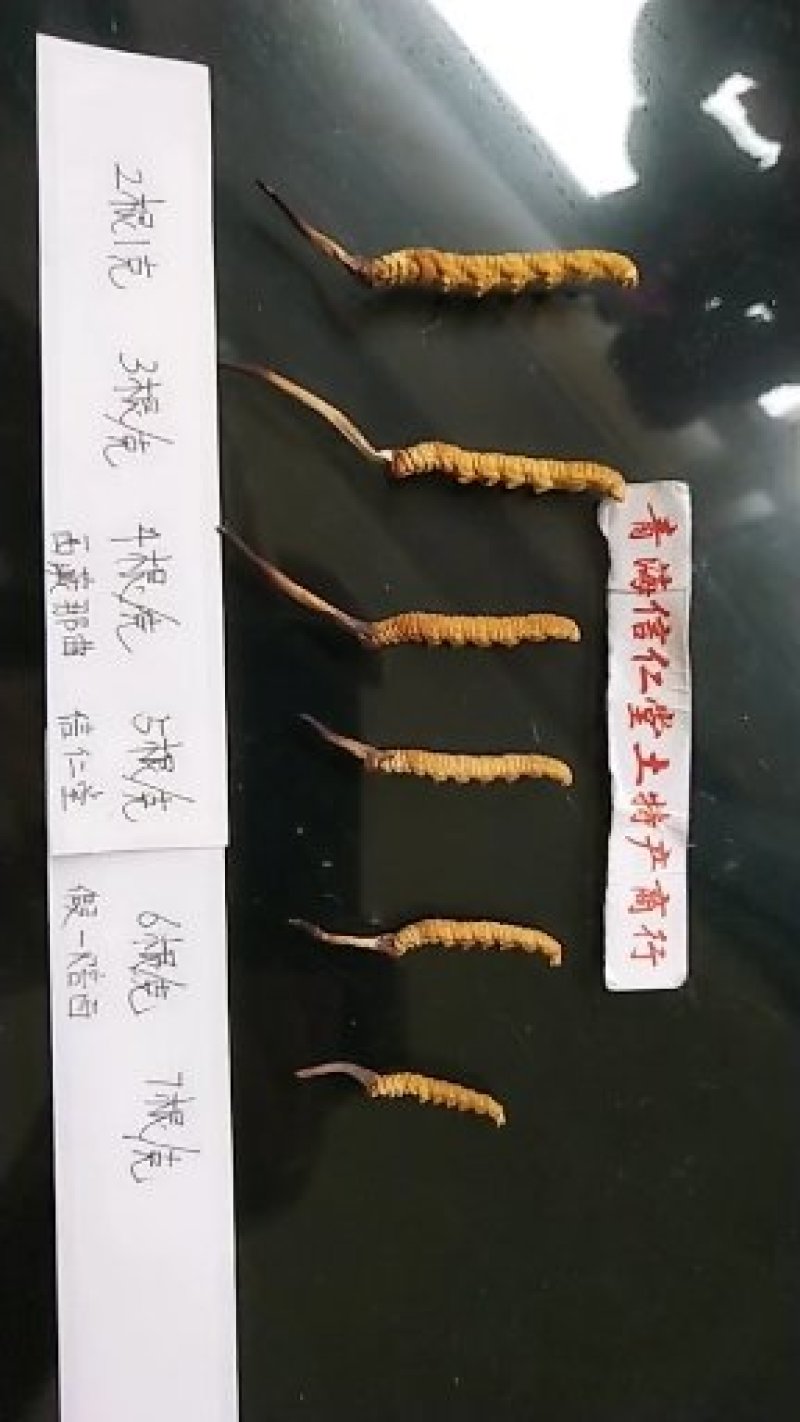 2根1克 3根1克 4根1克 5根1克 6根1克 7根1克
西藏那曲 信仁堂 假一陪百
青海信仁堂土特产商行